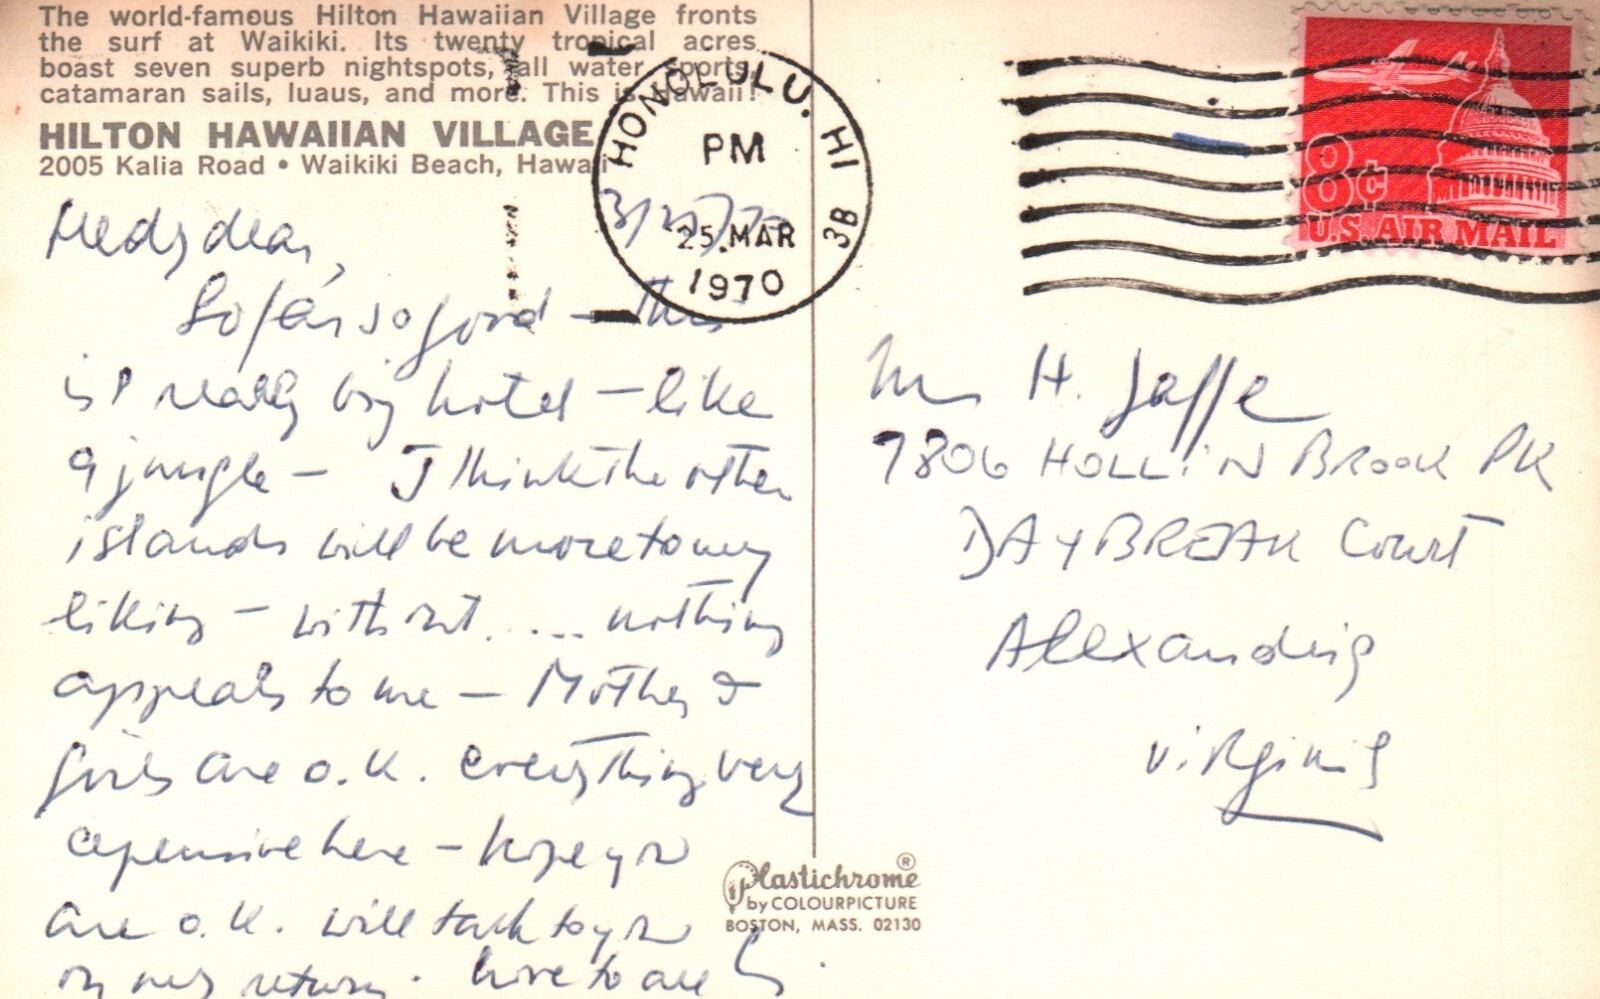 The world-famous Hilton Hawaiian Village fronts
the surf at Waikiki. Its twenty tropical acres
boast seven superb nightspots, all water sports,
catamaran sails, luaus, and more. This is Hawaii!
HILTON HAWAIIAN VILLAGE
2005 Kalia Road • Waikiki Beach, Hawaii
HONOLULU. HI
PM
25 MAR
1970
3B
8¢
U.S. AIR MAIL
Hedy dear,
So far so good — This
is a really big hotel — like
a jungle — I think the other
islands will be more to my
liking — without ..... nothing
appeals to me — Mother &
girls are o.k. everything very
expensive here — hope you
are o.k. will talk to you
on my return. Love to all
H. Jaffe
7806 HOLLIN BROOK PK
DAYBREAK Court
Alexandria
Virginia
Plastichrome®
by COLOURPICTURE
BOSTON, MASS. 02130